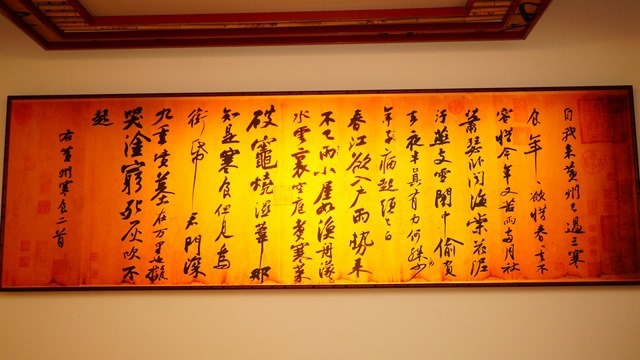 自我來黃州已過三寒
食年〻欲惜春春去不
容惜今年又苦雨兩月秋
蕭瑟卧聞海棠花泥
汙燕支雪闇中偷負
去夜半真有力何殊少
年子病起頭已白
春江欲入戶雨勢來
不已雨小屋如漁舟濛〻
水雲裏空庖煮寒菜
破竈燒濕葦那
知是寒食但見烏
銜帋君門深
九重墳墓在万里也擬
哭塗窮死灰吹不
起
右黃州寒食二首